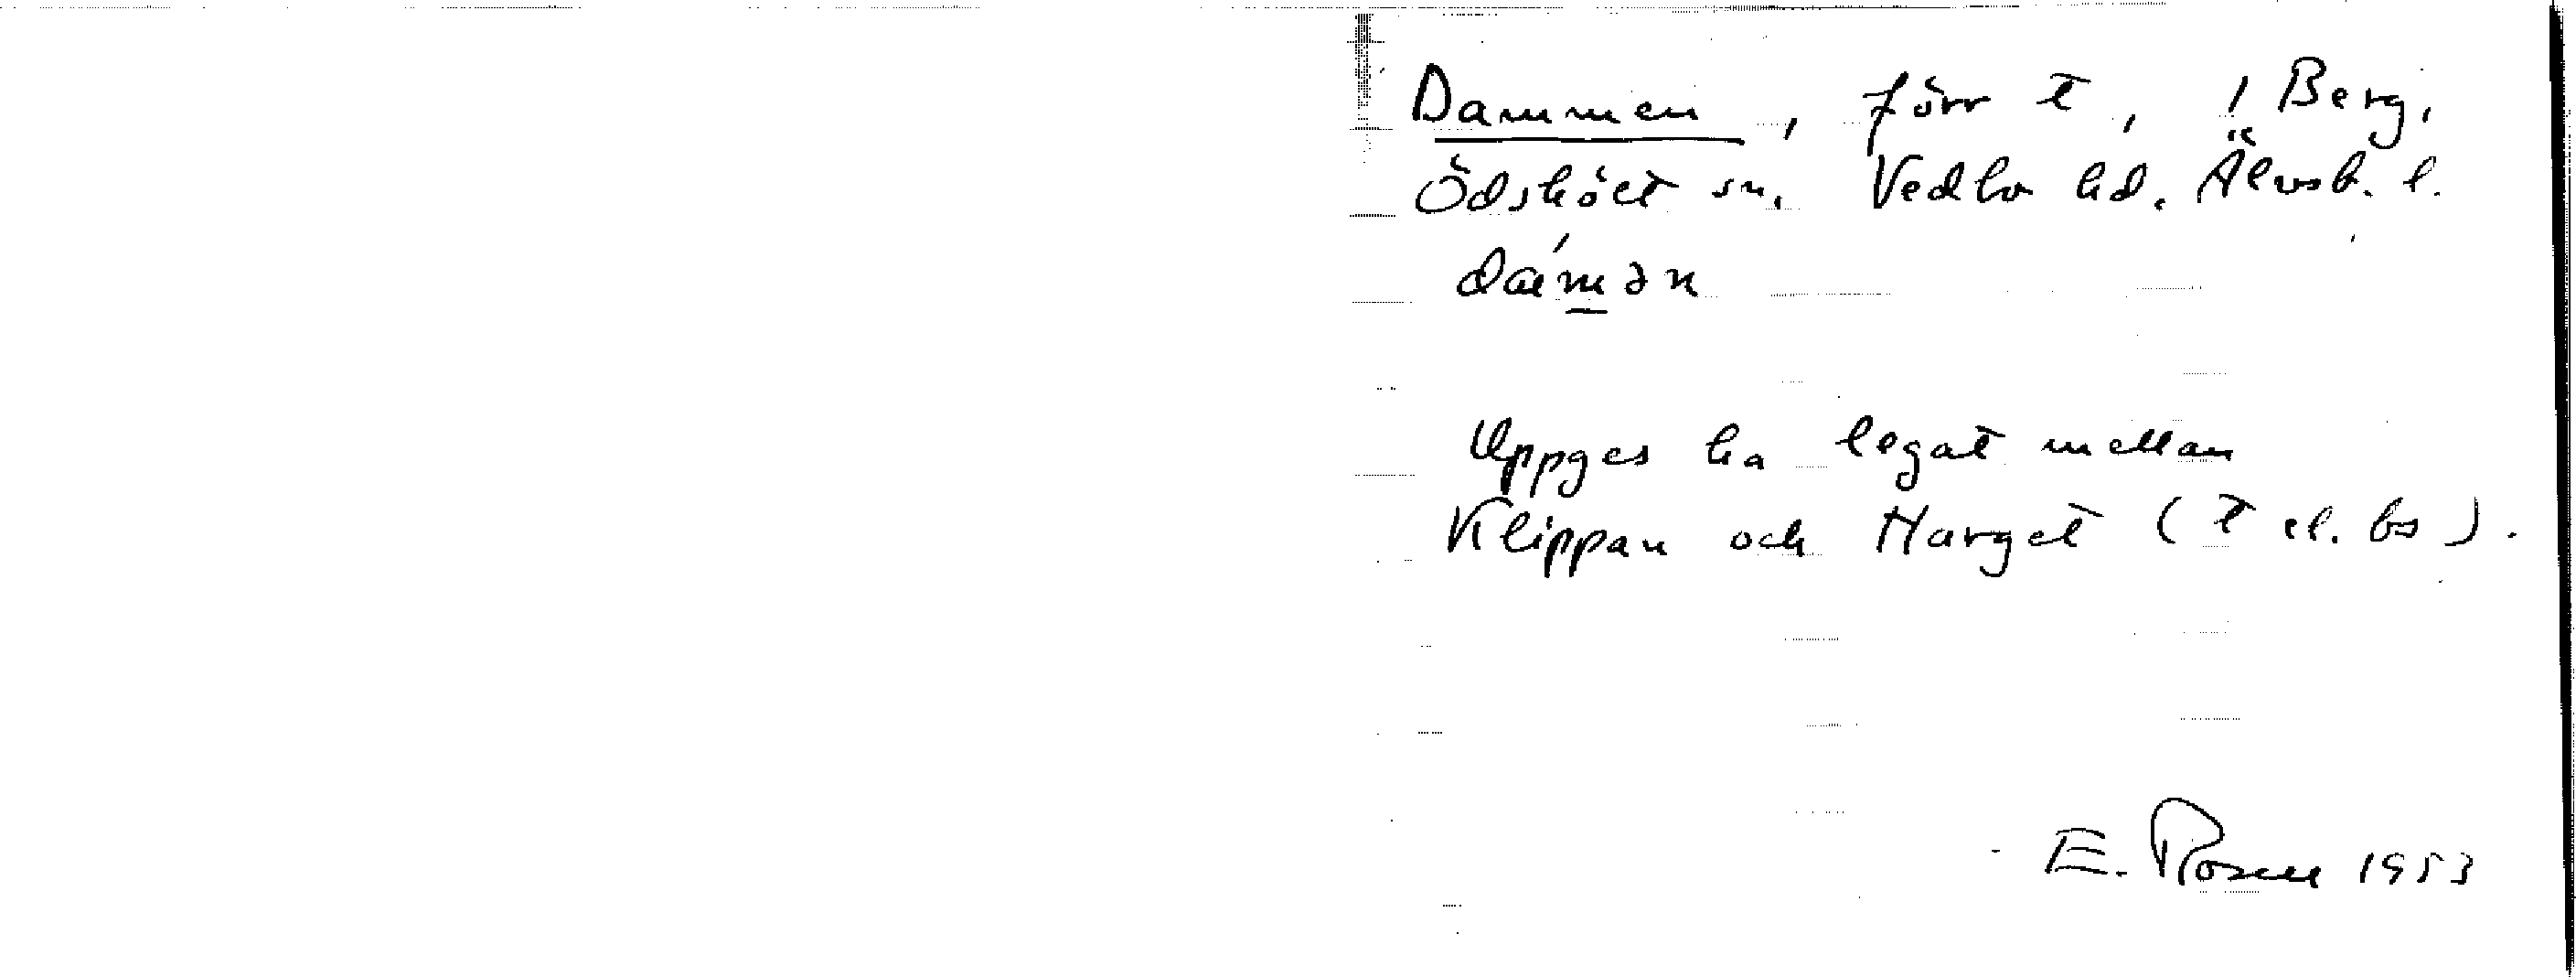 Dammen, förr t, i Berg,
Ödskölt sn. Vedbo hd. Älvsb. l.
dám̲ən
Uppges ha legat mellan
Klippan och Harget (t el. bs).
E. Rosell 1953